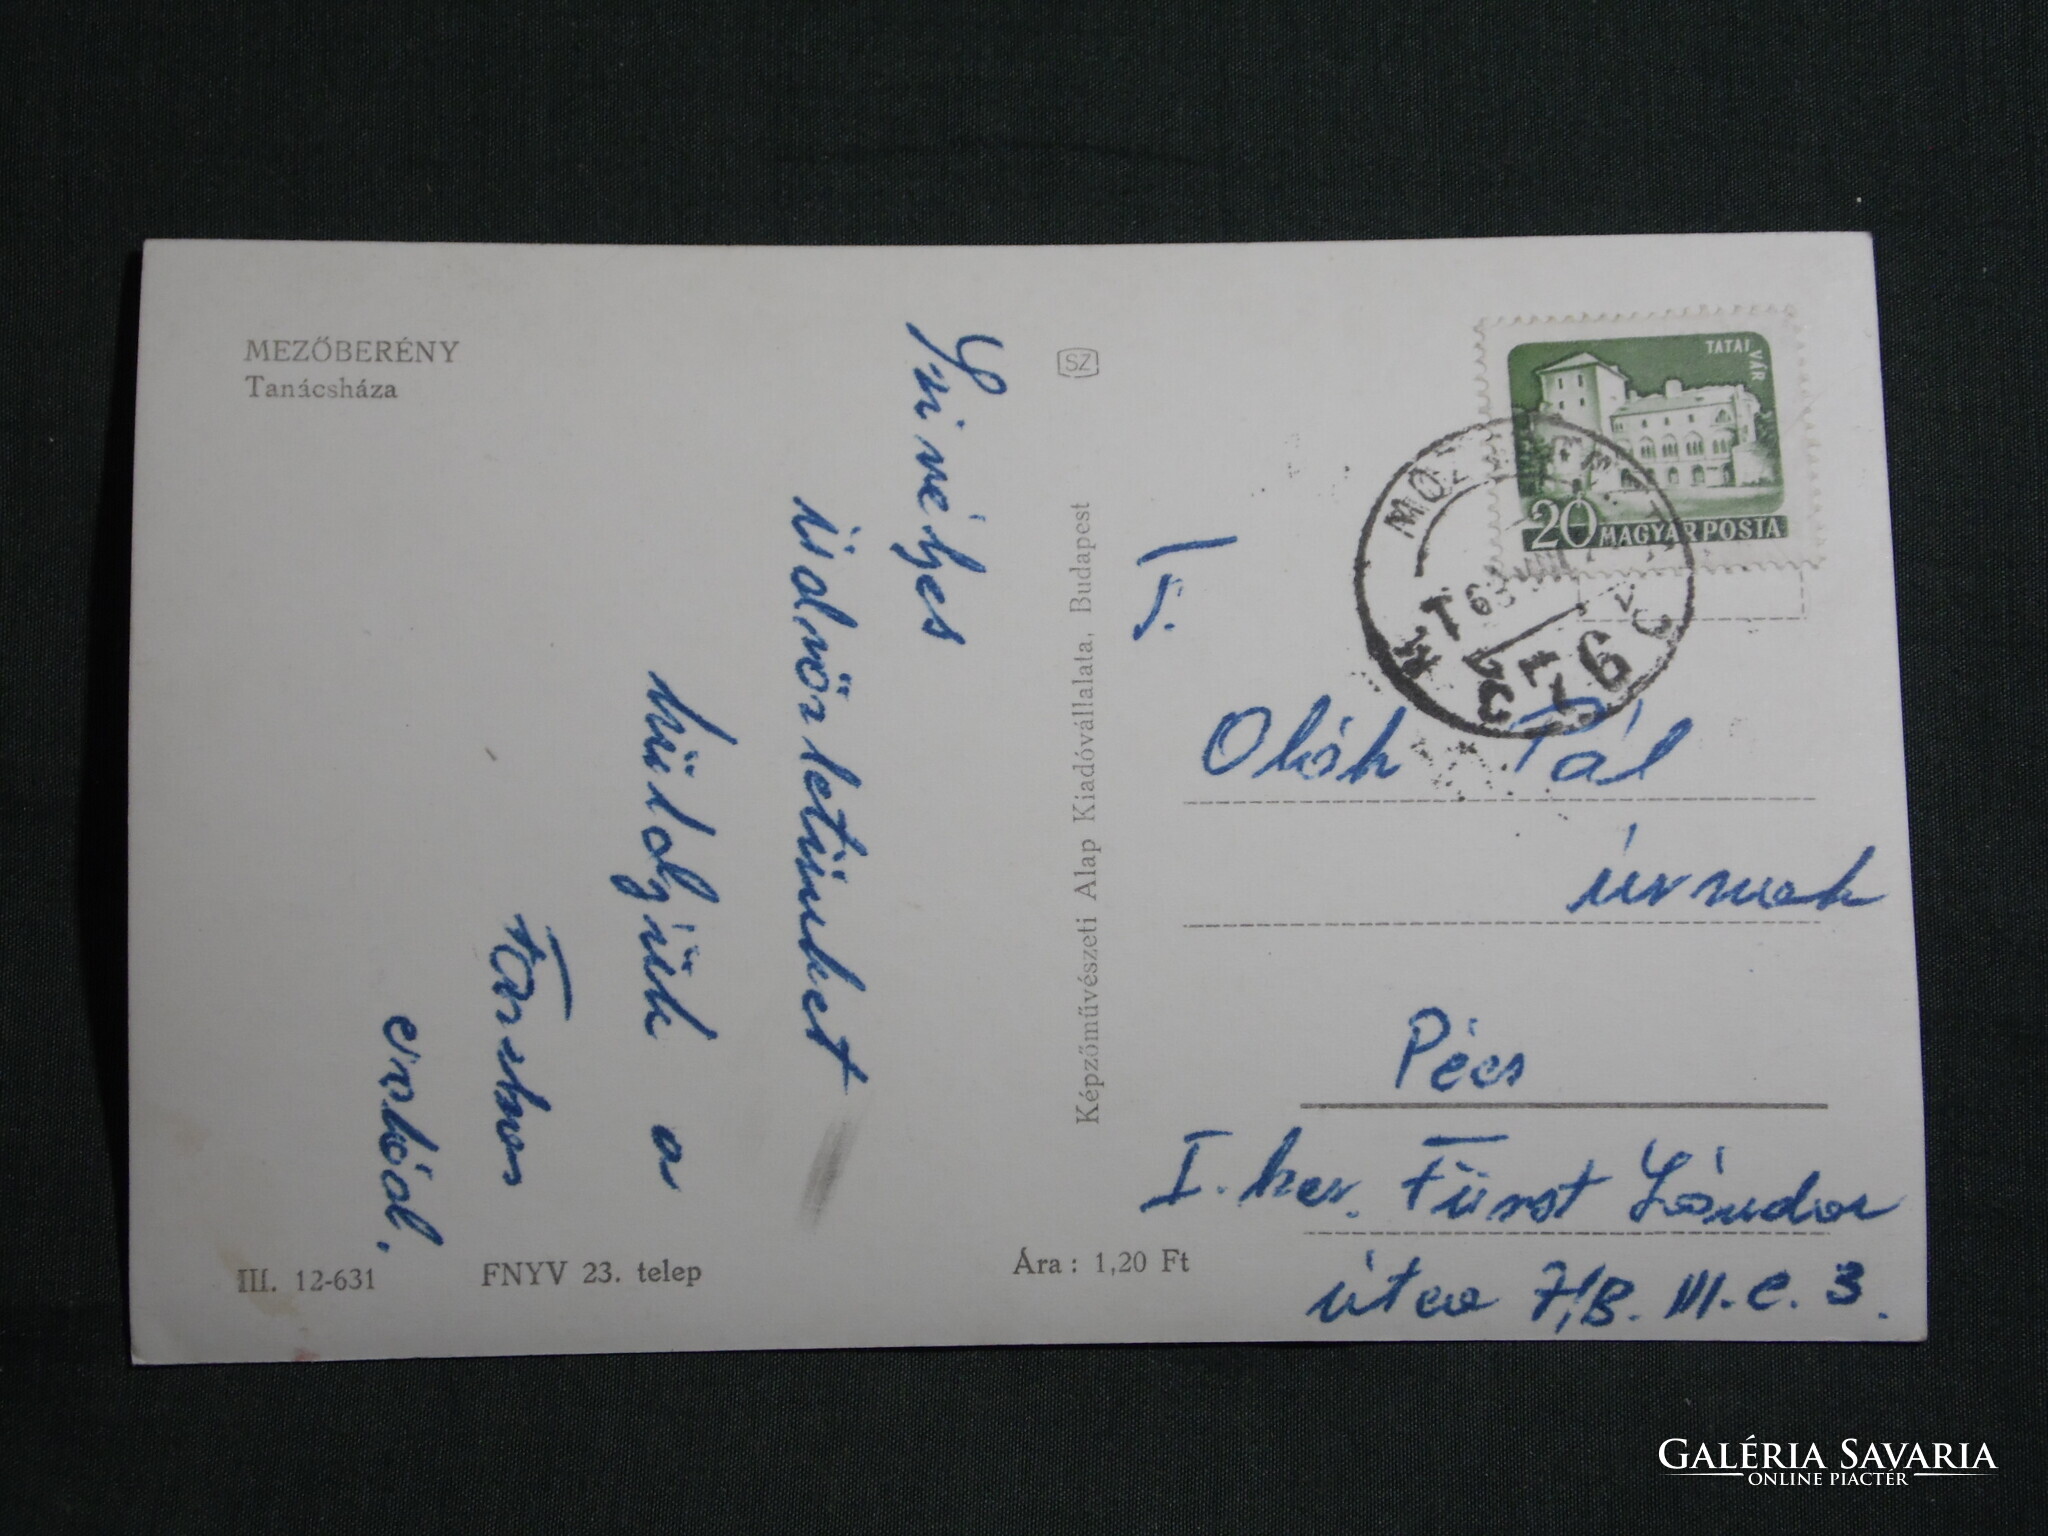 MEZŐBERÉNY
Tanácsháza
Szivélyes
üdvözletünket
küldjük a
Tarhos
erdből.
III. 12-631
FNYV 23. telep
Ára: 1,20 Ft
SZ
Képzőművészeti Alap Kiadóvállalata, Budapest
TATAI VÁR
20 MAGYAR POSTA
76
Oláh Pál
úrnak
Pécs
I. ker. Fürst Sándor
útca 7/B. III. e. 3.
GALÉRIA SAVARIA
ONLINE PIACTÉR